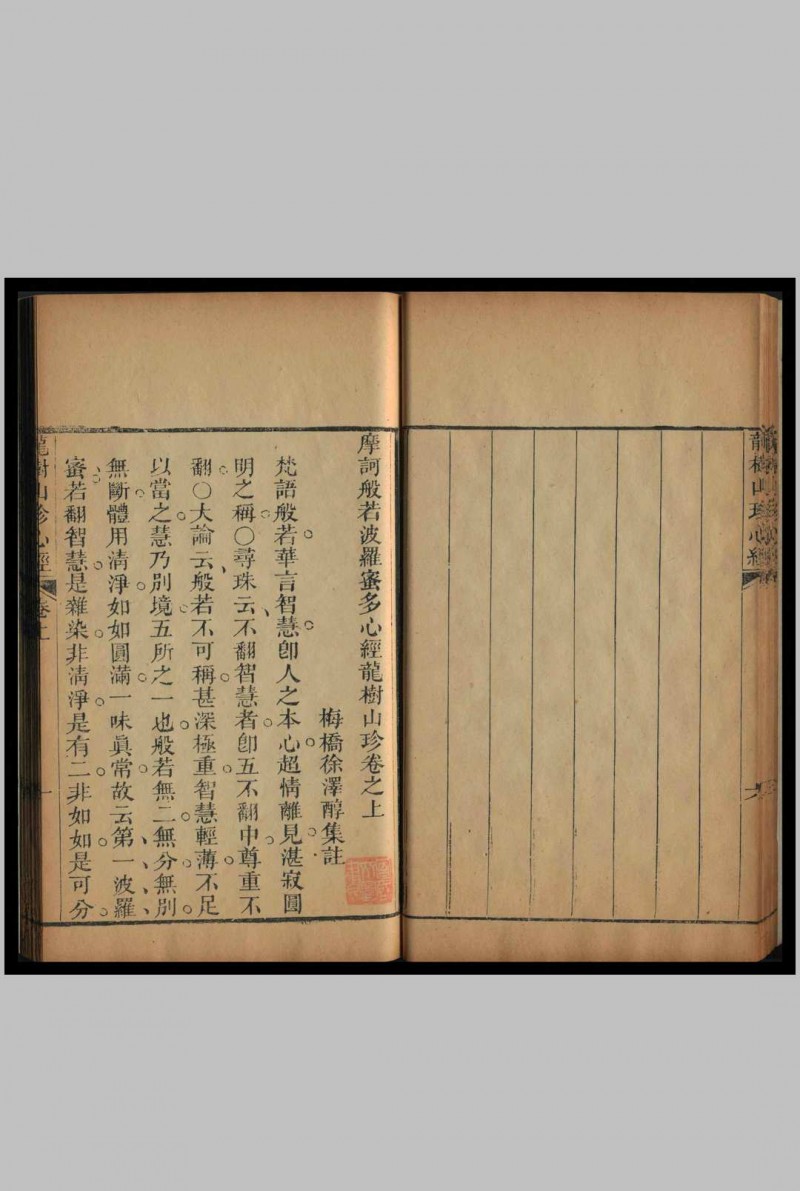 龍樹山珍心經
摩訶般若波羅蜜多心經龍樹山珍卷之上
梅橋徐澤醇集註
梵語般若華言智慧卽人之本心超情離見湛寂圓
明之稱○尋珠云不翻智慧者卽五不翻中尊重不
翻○大論云般若不可稱甚深極重智慧輕薄不足
以當之慧乃別境五所之一也般若無二無分無別
無斷體用淸淨如如圓滿一味眞常故云第一波羅
蜜若翻智慧是雜染非淸淨是有二非如如是可分
龍樹山珍心經 卷上 一